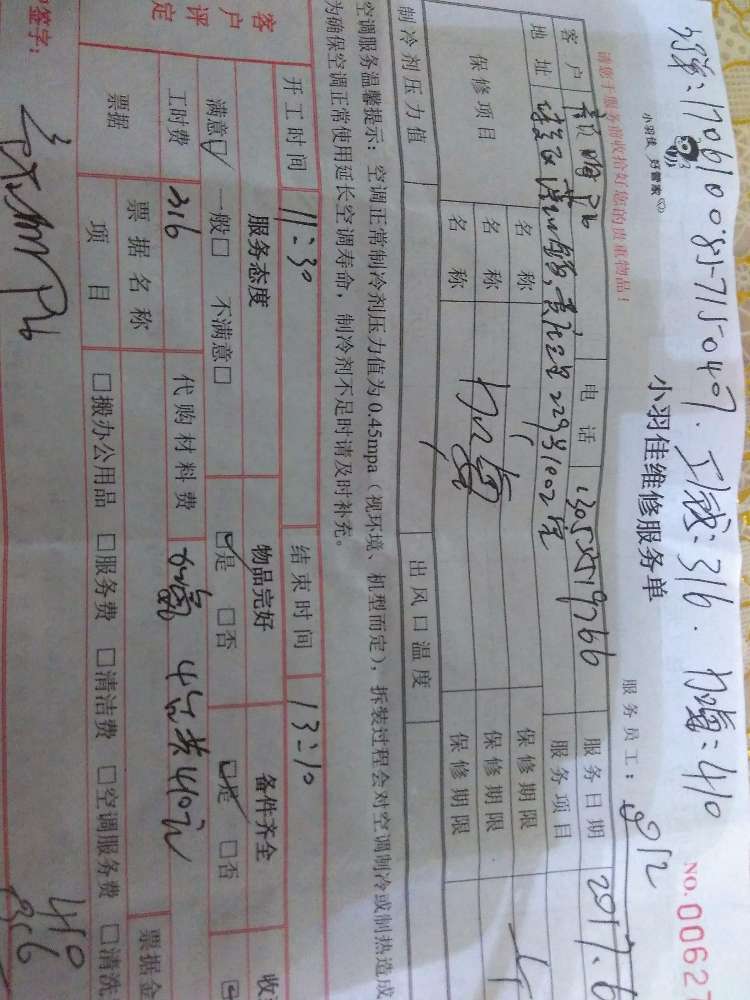 170610085715049. 工钱:316. 加氟:410
小羽佳 好管家
小羽佳维修服务单
NO.00627
请您于服务前收拾好您的贵重物品!
服务员工:
客户
电话 13055519766
服务日期 2017.6
地址
229号1002室
服务项目
保修项目
名称
保修期限
名称 加氟
保修期限
名称
保修期限
制冷剂压力值
出风口温度
空调服务温馨提示:空调正常制冷剂压力值为0.45mpa(视环境、机型而定),拆装过程会对空调制冷或制热造成
为确保空调正常使用延长空调寿命,制冷剂不足时请及时补充。
开工时间 11:30 结束时间 13:10
客户评定
服务态度 物品完好 备件齐全
满意□ 一般□ 不满意□ □是 □否 □是 □否
工时费 316 代购材料费 加氟 4台共410元
票据 票据名称 票据金
项目 □搬办公用品 □服务费 □清洁费 □空调服务费 □清洗
410
316
签字: